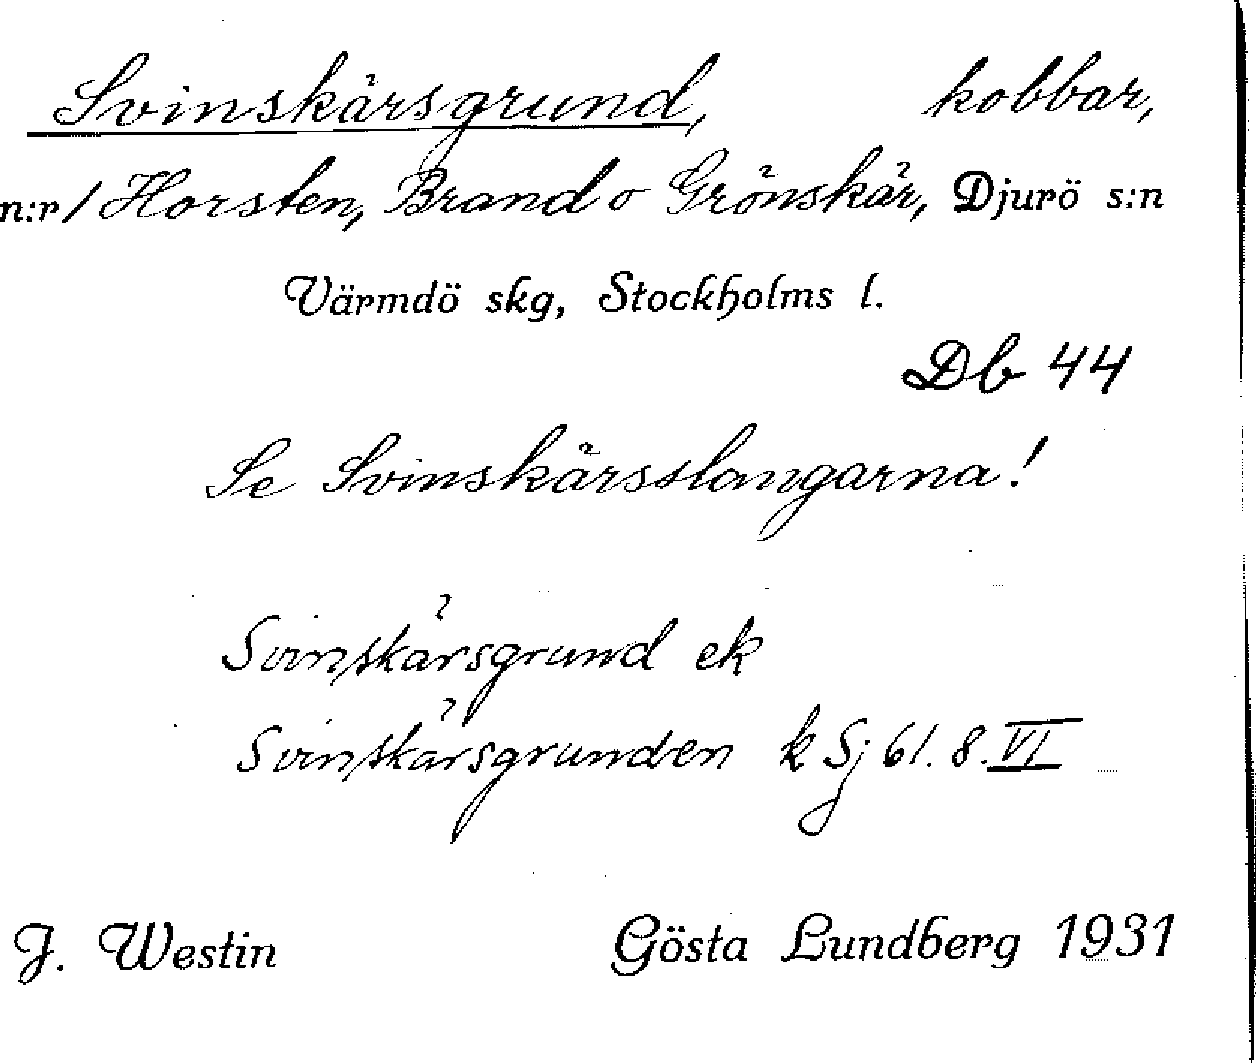 Svinskärsgrund, kobbar,
n:r / Horsten, Brand o Grönskär, Djurö s:n
Värmdö skg, Stockholms l.
Db 44
Se Svinskärsslangarna!
Svinskärsgrund ek
Svinskärsgrunden k Sj 61. 8. VI
J. Westin Gösta Lundberg 1931